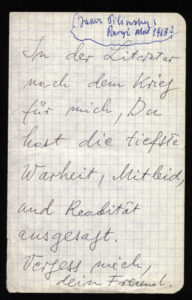 János Pilinszky
Paryż Mai 1968?
In der Literatur
nach dem Krieg
für mich, Du
hast die tiefste
Warheit, Mitleid,
und Realität
ausgesagt.
Vergess mich,
dein Freund.